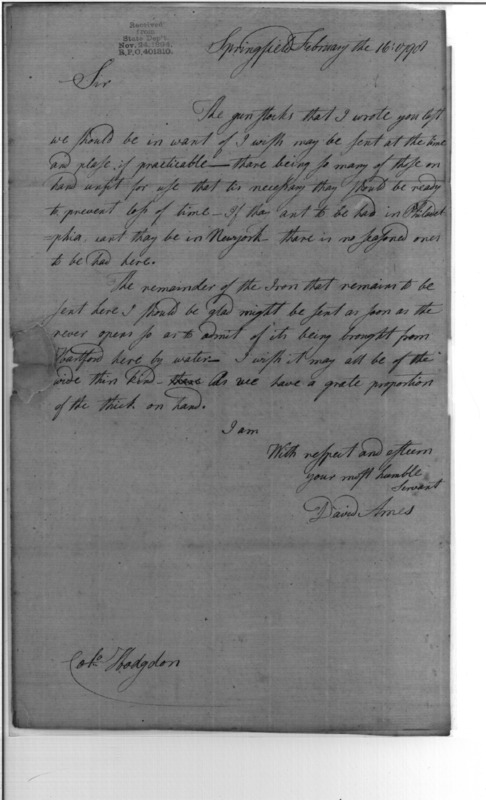 Received
From
State Dep't.
Nov. 24, 1894,
R.P.O. 401810.
Springfield February the 16: 1798
Sir
The gun stocks that I wrote you last
we should be in want of I wish may be sent at the time
and plase, if practicable — thare being so many of those on
hand unfit for use that tis necessary thay should be ready
to prevent loss of time — If thay ant to be had in Philadel
=phia cant thay be in Newyork thare is no seasoned ones
to be had here.
The remainder of the Iron that remains to be
sent here I should be glad might be sent as soon as the
rever opens so as to admit of its being brought from
Hartford here by water — I wish it may all be of the
wide thin kind — As wee have a grate proportion
of the thick on hand.
I am
With respect and esteem
your most humble
Servant
David Ames
Colo. Hodgdon